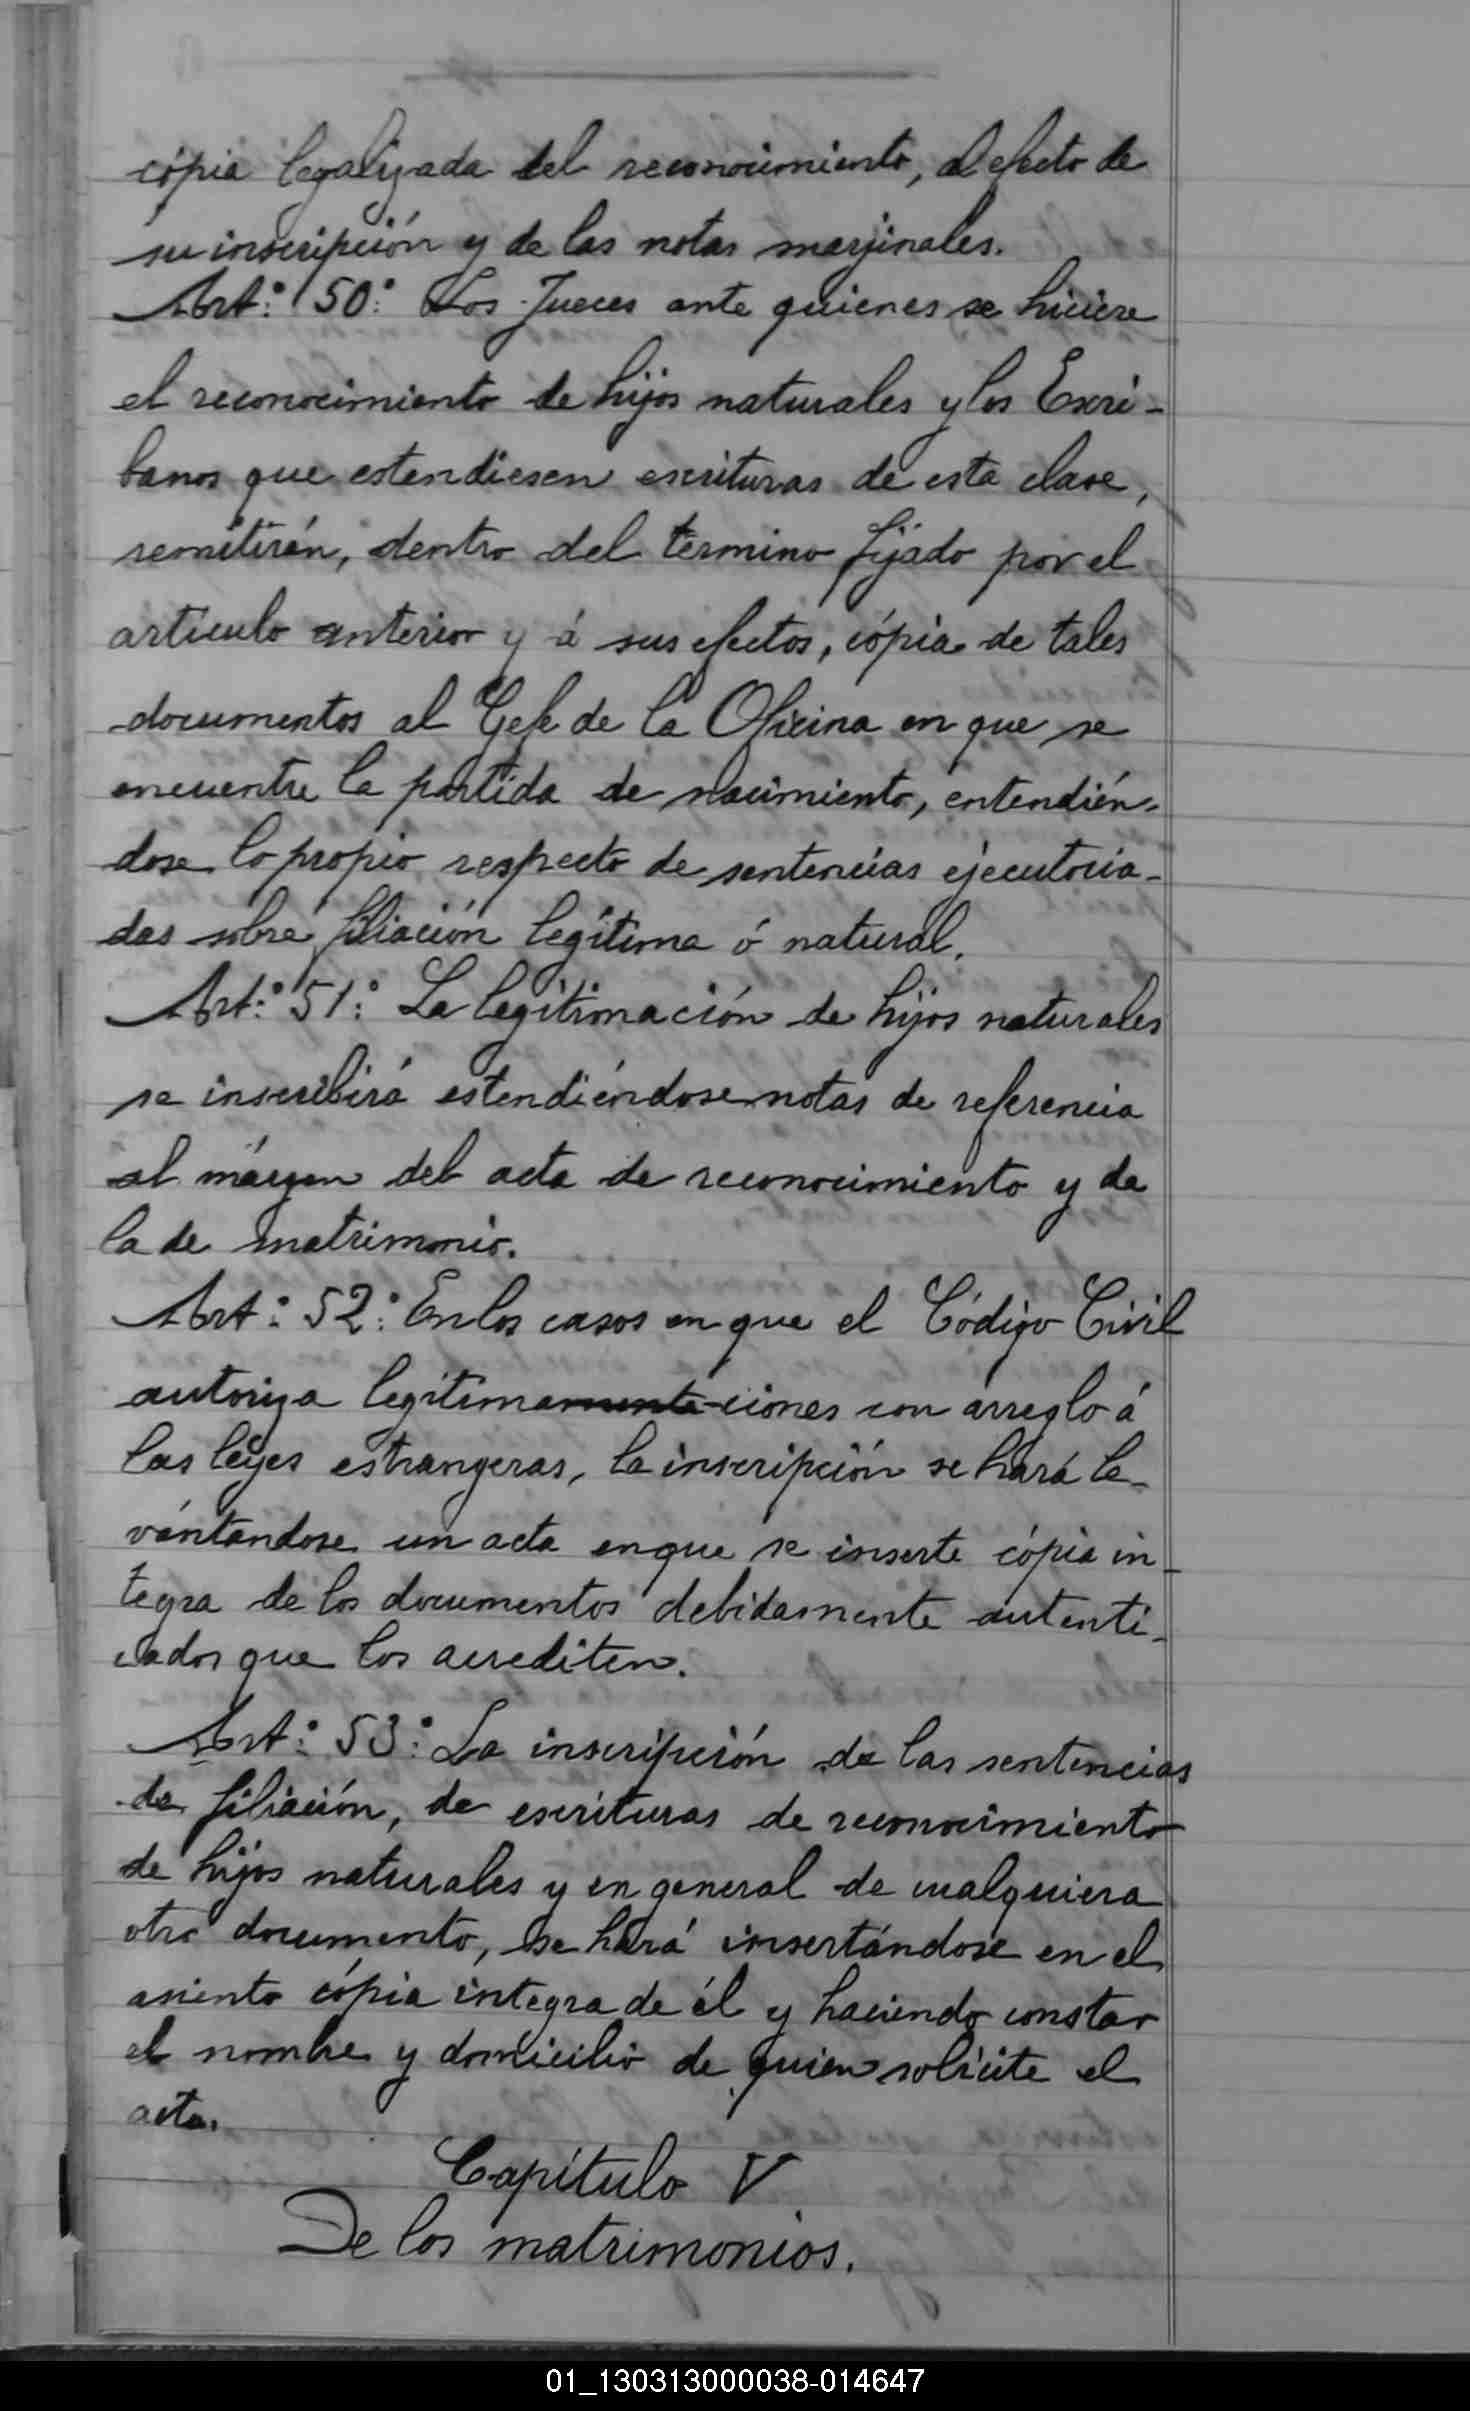 cópia legalizada del reconocimiento, al efecto de
su inscripción y de las notas marjinales.
Art.º 50.º Los Jueces ante quienes se hiciere
el reconocimiento de hijos naturales y los Escri-
banos que estendiesen escrituras de esta clase,
remitirán, dentro del término fijado por el
artículo anterior y á sus efectos, cópia de tales
documentos al Gefe de la Oficina en que se
encuentre la partida de nacimiento, entendién-
dose lo propio respecto de sentencias ejecutoria-
das sobre filiación legítima ó natural.
Art.º 51.º La legitimación de hijos naturales
se inscribirá estendiéndose notas de referencia
al márgen del acta de reconocimiento y de
la de matrimonio.
Art.º 52.º En los casos en que el Código Civil
autoriza legitimamente-ciones con arreglo á
las leyes estrangeras, la inscripción se hará le-
vántandose un acta en que se inserte cópia in-
tegra de los documentos debidamente autenti-
cados que los acrediten.
Art.º 53.º La inscripción de las sentencias
de filiación, de escrituras de reconocimiento
de hijos naturales y en general de cualquiera
otro documento, se hará insertándose en el
asiento cópia integra de él y haciendo constar
el nombre y domicilio de quien solicite el
acta.
Capítulo V
De los matrimonios.
01_130313000038-014647